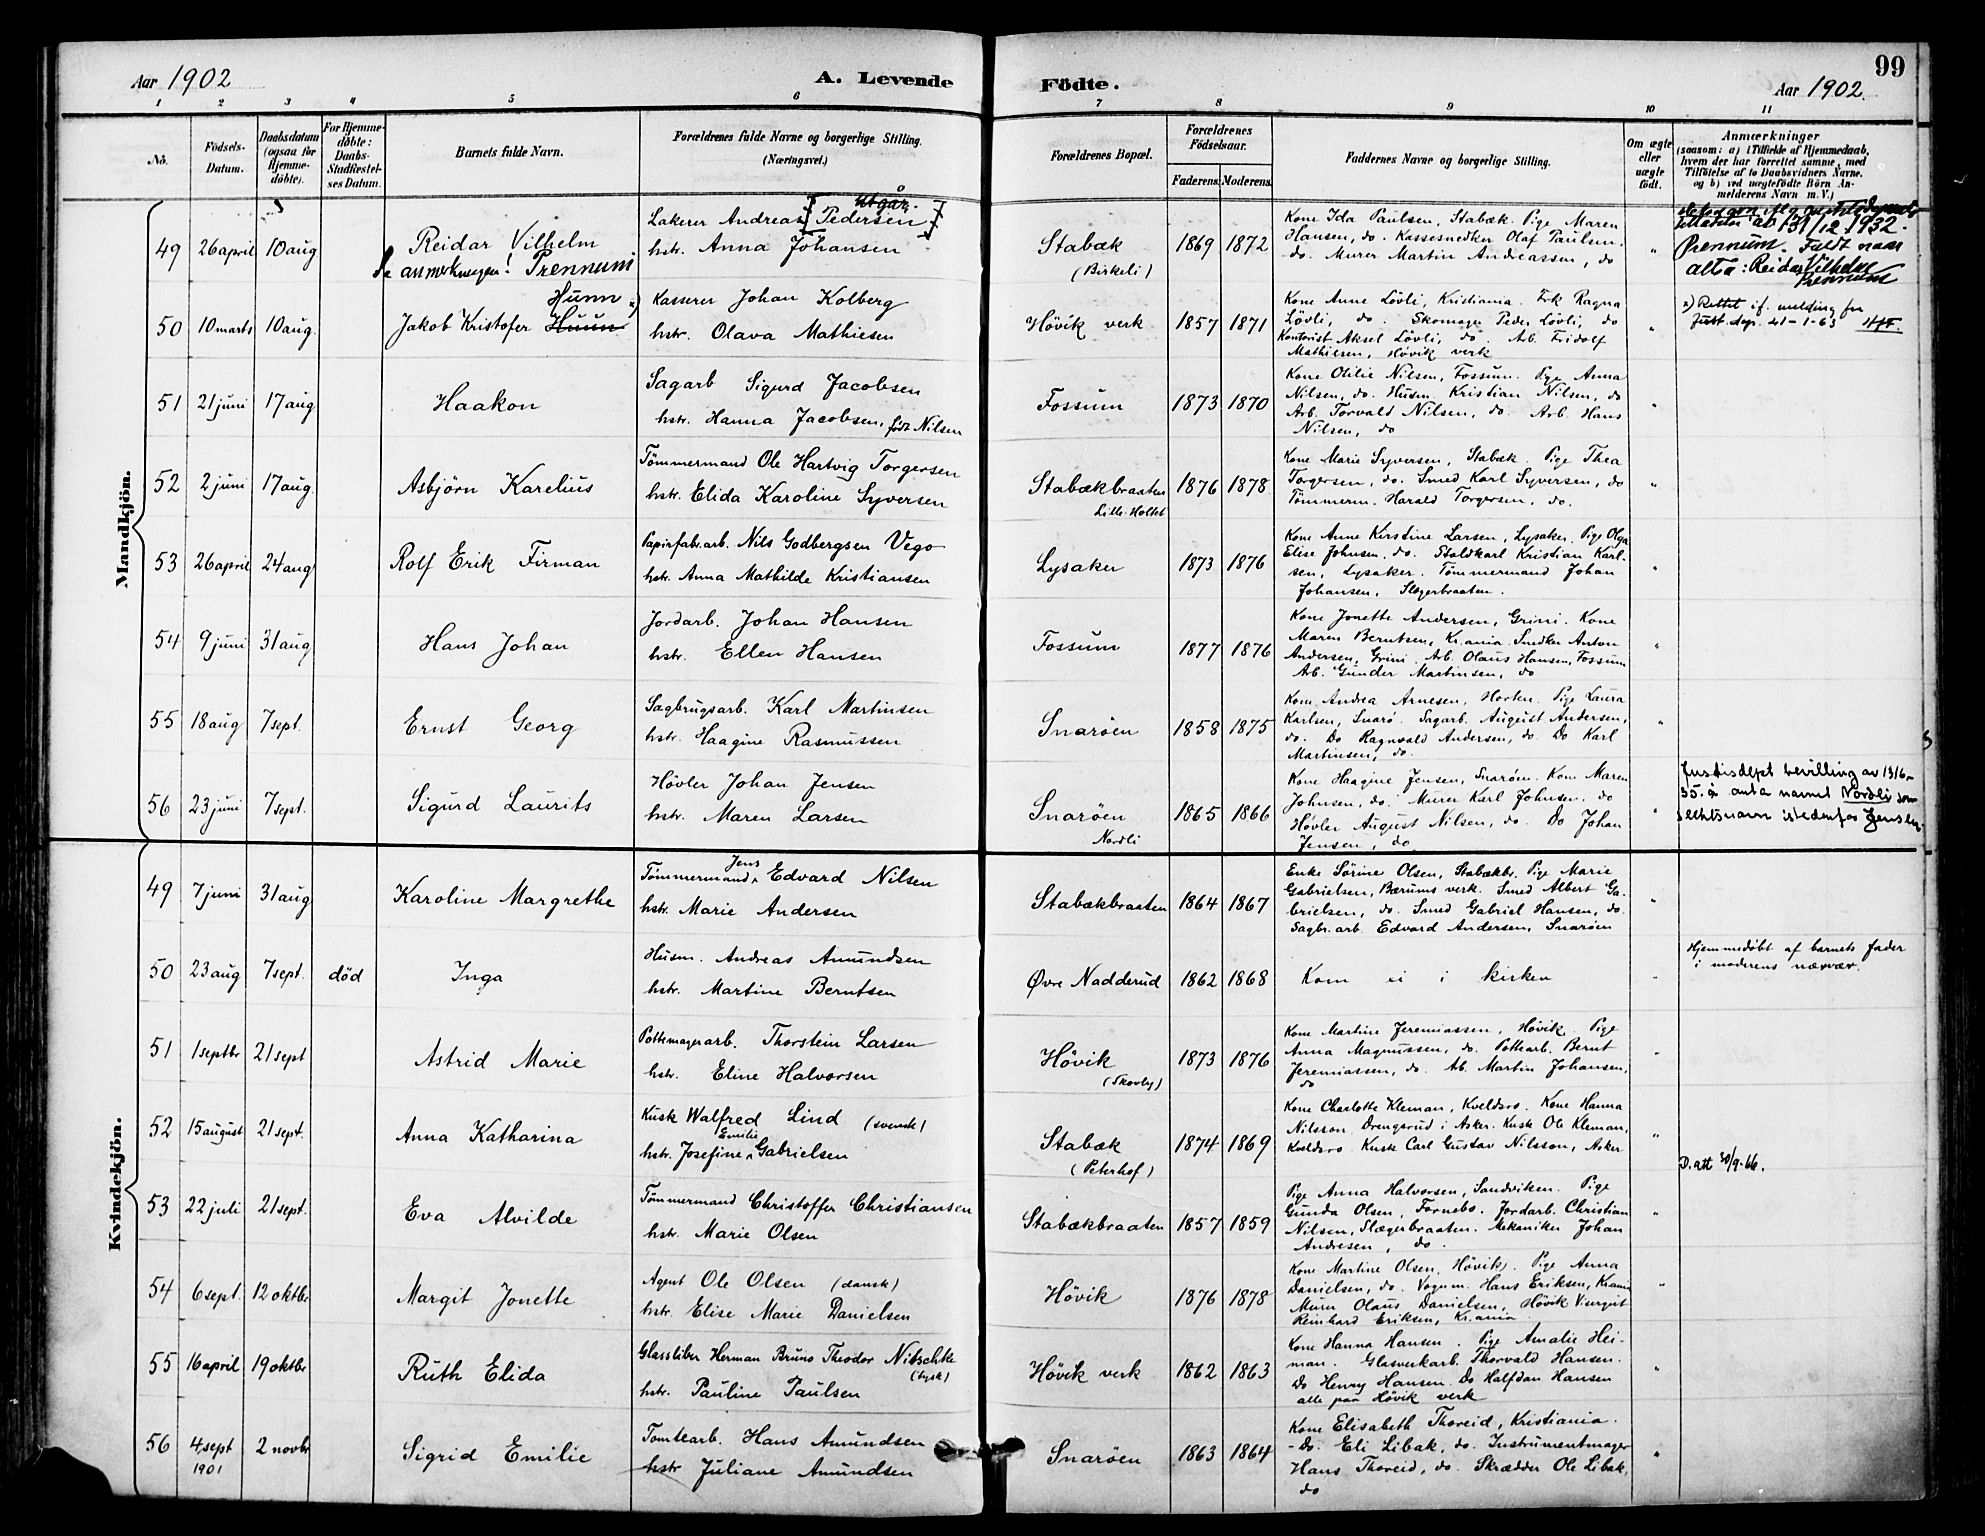 99
Aar 1902
A. Levende
Födte.
Aar 1902.
1 2 3 4 5 6 7 8 9 10 11
No.
Födsels-
Datum.
Daabsdatum
(ogsaa for
Hjemme-
døbte).
For Hjemme-
döbte:
Daabs-
Stadfæstel-
ses Datum.
Barnets fulde Navn.
Forældrenes fulde Navne og borgerlige Stilling.
(Næringsvei.)
Forældrenes Bopæl.
Forældrenes
Födselsaar.
Faderens. Moderens.
Faddernes Navne og borgerlige Stilling.
Om ægte
eller
uægte
födt.
Anmærkninger
(saasom: a) i Tilfælde af Hjemmedaab,
hvem der har forrettet samme, med
Tilföielse af to Daabsvidners Navne.
og b) ved uægtefödte Börn An-
melderens Navn m. V.)
Mandkjön.
49 26 april 10 aug
Reidar Vilhelm
Se anmerkningen! Prennum
utgår.
Lakerer Andreas [Pedersen]
hstr. Anna Johansen
Stabæk
(Birkeli)
1869 1872
Kone Ida Paulsen, Stabæk. Pige Maren
Hansen, do. Kassesnedker Olaf Paulsen,
do. Murer Martin Andreassen, do
"
31/12 1932.
Prennum. Fuldt navn
altså: Reidar Vilhelm
Prennum
50 10 marts 10 aug.
Hunn x)
Jakob Kristofer Huun
Kasserer Johan Kolberg
hstr. Olava Mathiesen
Hövik verk
1857 1871
Kone Anne Lövli, Kristiania. Frk Ragna
Lövli, do. Skomager Peder Lövli, do
Kontorist Aksel Lövli, do. Arb. Fridolf
Mathiesen, Hövik verk
"
x) Rettet if. melding fra
Just. dep. 21-1-63
51 21 juni 17 aug
Haakon
Sagarb Sigurd Jacobsen
hstr. Hanna Jacobsen, født Nilsen
Fossum
1873 1870
Kone Otilie Nilsen, Fossum. Pige Anna
Nilsen, do. Husm. Kristian Nilsen, do
Arb. Torvald Nilsen, do. Arb. Hans
Nilsen, do
"
52 2 juni 17 aug.
Asbjörn Karelius
Tömmermand Ole Hartvig Torgersen
hstr. Elida Karoline Syversen
Stabækbraaten
Lille-Holtet
1876 1878
Kone Marie Syversen, Stabæk. Pige Thea
Torgersen, do. Smed Karl Syversen, do
Tömmerm. Harald Torgersen, do.
"
53 26 april 24 aug
Rolf Erik Firman
Papirfabr.arb. Nils Godbergsen Vego
hstr. Anna Mathilde Kristiansen
Lysaker
1873 1876
Kone Anne Kirstine Larsen, Lysaker. Pige Olga
Elise Johnsen, do. Staldkarl Kristian Karl-
sen, Lysaker. Tömmermand Johan
Johansen, Slægerbraaten.
"
54 9 juni 31 aug
Hans Johan
Jordarb. Johan Hansen
hstr. Ellen Hansen
Fossum
1877 1876
Kone Jonette Andersen, Grini. Kone
Maren Berntsen, Kr.ania. Snedker Anton
Andersen, Grini. Arb. Olaus Hansen, Fossum
Arb. Gunder Martinsen, do
"
55 18 aug 7 sept.
Ernst Georg
Sagbrugsarb. Karl Martinsen
hstr. Haagine Rasmussen
Snaröen
1858 1875
Kone Andrea Arnesen, Horten. Pige Laura
Karlsen, Snarö. Sagarb. August Andersen,
do. Do Ragnvald Andersen, do. Do Karl
Martinsen, do.
"
56 23 juni 7 sept.
Sigurd Laurits
Hövler Johan Jensen
hstr. Maren Larsen
Snaröen
Nordli
1865 1866
Kone Haagine Jensen, Snaröen. Kone Maren
Johnsen, do. Murer Karl Johnsen, do
Hövler August Nilsen, do. Do Johan
Jensen, do
"
Justisdept bevilling av 13/6-
35. å anta navnet Nordli som
slektsnavn istedenfor Jensen.
Kvindekjön.
49 7 juni 31 aug
Karoline Margrethe
Jens
Tömmermand Edvard Nilsen
hstr. Marie Andersen
Stabækbraaten
1864 1867
Enke Sörine Olsen, Stabækbr. Pige Marie
Gabrielsen, Bærums verk. Smed Albert Ga-
brielsen, do. Smed Gabriel Hansen, do.
Sagbr. arb. Edvard Andersen, Snaröen
"
50 23 aug 7 sept. död
Inga
Husm. Andreas Amundsen
hstr. Martine Berntsen
Övre Nadderud
1862 1868
Kom ei i kirken
"
Hjemmedöbt af barnets fader
i moderens nærvær.
51 1 septbr 21 sept
Astrid Marie
Pottemagerarb. Thorstein Larsen
hstr. Eline Halvorsen
Hövik
(Skovly)
1873 1876
Kone Martine Jeremiassen, Hövik. Pige
Anna Magnussen, do. Pottearb. Bernt
Jeremiassen, do. Ab. Martin Johansen,
do
"
52 15 august 21 sept.
Anna Katharina
Kusk Walfred Lind (svensk)
Emilie
hstr. Josefine Gabrielsen
Stabæk
(Peterhof)
1874 1869
Kone Charlotte Kleman, Kveldsro. Kone Hanna
Nilsson Drengsrud i Asker. Kusk Ole Kleman,
Kveldsro. Kusk Carl Gustav Nilsson, Asker
"
D. att 30/9-66.
53 22 juli 21 sept.
Eva Alvilde
Tömmermand Christoffer Christiansen
hstr. Marie Olsen
Stabækbraaten
1857 1859
Pige Anna Halvorsen, Sandviken. Pige
Gunda Olsen, Fornebo. Jordarb. Christian
Nilsen, Slægerbraaten. Mekaniker Johan
Andresen, do.
"
54 6 sept. 12 oktbr
Margit Jonette
Agent Ole Olsen (dansk)
hstr. Elise Marie Danielsen
Hövik
1876 1878
Kone Martine Olsen, Hövik. Pige Anna
Danielsen, do. Vognm. Hans Eriksen, Kr.ania
Murer Olaus Danielsen, Hövik Visergut
Reinhard Eriksen, Kr.ania.
"
55 16 april 19 oktbr
Ruth Elida
Glassliber Herman Bruno Theodor Nitschke
(tysk)
hstr. Pauline Paulsen
Hövik verk
1862 1863
Kone Hanna Hansen. Pige Amalie Hei-
man. Glasverkarb. Thorvald Hansen.
Do Henry Hansen. Do Halfdan Hansen
alle paa Hövik verk
"
56 4 sept 2 novbr
1901
Sigrid Emilie
Tomtearb. Hans Amundsen
hstr Juliane Amundsen
Snaröen
1863 1864
Kone Elisabeth Thoreid, Kristiania.
- Do. Eli Libak, do. Instrumentmager
Hans Thoreid, do. Skrædder Ole Libak,
do
"